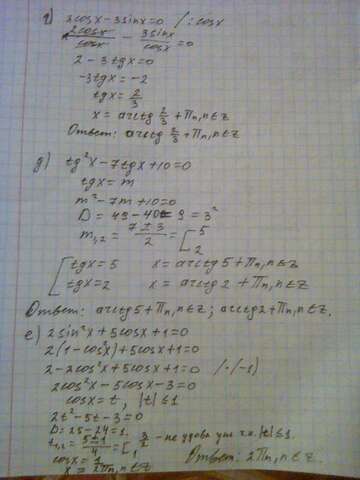 г) 2cosx-3sinx=0 /:cosx
2cosx/cosx - 3sinx/cosx =0
2-3tgx=0
-3tgx=-2
tgx=2/3
x=arctg 2/3 +πn, n∈z
Ответ: arctg 2/3 +πn, n∈z
д) tg²x-7tgx+10=0
tgx=m
m²-7m+10=0
D=49-40=9=3²
m₁,₂=7±3/2=[5 2
[tgx=5 x=arctg5+πn, n∈z
tgx=2 x=arctg2+πn, n∈z
Ответ: arctg5+πn, n∈z; arctg2+πn, n∈z.
е) 2sin²x+5cosx+1=0
2(1-cos²x)+5cosx+1=0
2-2cos²x+5cosx+1=0 /·(-1)
2cos²x-5cosx-3=0
cosx=t, |t|≤1
2t²-5t-3=0
D=25-24=1
t₁,₂=5±1/4=[3/2 1 - не удов. ур. т.к. |t|≤1.
cosx=1
x=2πn, n∈z Ответ: 2πn, n∈z.